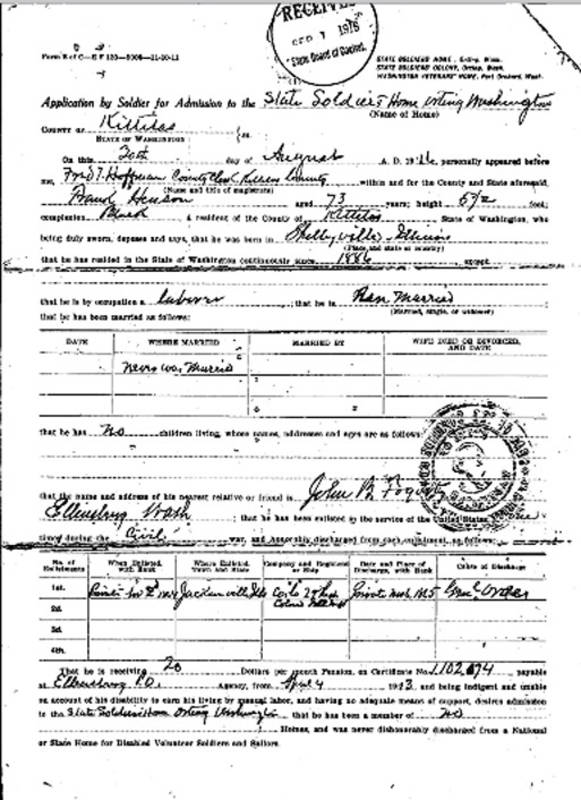 RECEIVED
SEP 1 1916
State Board of Control
STATE SOLDIERS' HOME, Orting, Wash.
STATE SOLDIERS' COLONY, Orting, Wash.
WASHINGTON VETERANS' HOME, Port Orchard, Wash.
Application by Soldier for Admission to the State Soldiers Home Orting Washington
(Name of Home)
COUNTY OF Kittitas
STATE OF WASHINGTON ss.
On this 20th day of August A. D. 1916, personally appeared before
me, Fred T. Hoffman County Clerk Kittitas County within and for the County and State aforesaid,
(Name and title of magistrate)
Frank Henson aged 73 years; height feet;
complexion Black A resident of the County of Kittitas State of Washington, who
being duly sworn, deposes and says, that he was born in Shelbyville Illinois
(Place, and state or country)
that he has resided in the State of Washington continuously since 1886 except
that he is by occupation a laborer; that he is Married
(Married, single, or widower)
that he has been married as follows:
DATE WHERE MARRIED MARRIED BY WIFE DIED OR DIVORCED, AND DATE
Never was Married
that he has no children living, whose names, addresses and ages are as follows:
that the name and address of his nearest relative or friend is John B. Fogarty
Ellensburg Wash; that he has been enlisted in the service of the United States
times during the Civil war, and honorably discharged from each enlistment, as follows:
No. of Enlistments When Enlisted, with Rank Where Enlisted, Town and State Company and Regiment or Ship Date and Place of Discharge, with Rank Cause of Discharge
1st. Private Jacksonville Ills Co 29 Private
2d.
3d.
4th.
That he is receiving 20 Dollars per month Pension, on Certificate No. 1102674 payable
at Ellensburg P.O. Agency, from April 4 1913 and being indigent and unable
on account of his disability to earn his living by manual labor, and having no adequate means of support, desires admission
to the State Soldiers Home Orting Washington that he has been a member of no
Homes, and was never dishonorably discharged from a National
or State Home for Disabled Volunteer Soldiers and Sailors.